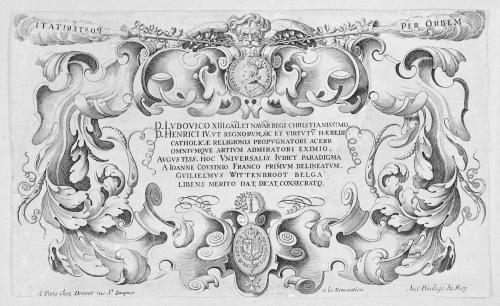 POSTERITATI
PER ORBEM
D. LVDOVICO XIII. GALL. ET NAVAR REGI CHRISTIANISSIMO
D. HENRICI IV. VT REGNORVM, SIC ET VIRTVTV̄ HÆREDI
CATHOLICÆ RELIGIONIS PROPVGNATORI ACERR
OMNIVMQVE ARTIVM ADMIRATORI EXIMIO,
AVGVSTISS. HOC VNIVERSALIS IVDICY PARADIGMA
A IOANNE COVSINO FRANCO PRIMVM DELINEATVM.
GVILIELMVS WITTENBROOT BELGA
LIBENS MERITO DAT, DICAT, CONSECRATQ.
A Paris Chez Drevet rue St. Jacques
a la Nonciation
Avec Privilege du Roy